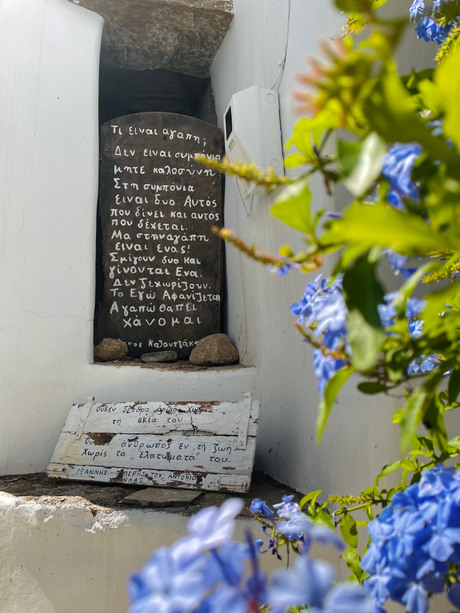 Τι ειναι αγαπη;
Δεν ειναι συμπονια
μητε καλοσύνη
Στη συμπόνια
ειναι δυο. Αυτός
που δινει και αυτος
που δέχεται.
Μα στην αγάπη
ειναι ενας!
Σμιγουν δυο και
γίνονται Ενα.
Δεν ξεχωρίζουν.
Το Εγω Αφανιζεται
Αγαπώ θα πει
χάνομαι
Καζαντζάκ
Ουδεν
τη σκια του
Ουδεν άνθρωπος εν τη ζωη
Χωρις τα ελατωματα του.
ΙΩΑΝΝΗΣ ΤΟΥ ΑΝΤΩΝΙΟ